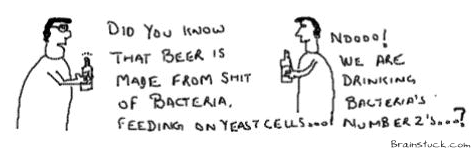 DID YOU KNOW
THAT BEER IS
MADE FROM SHIT
OF BACTERIA.
FEEDING ON YEAST CELLS....!
NOOOO!
WE ARE
DRINKING
BACTERIA'S
NUMBER 2'S....?
Brainstuck.com